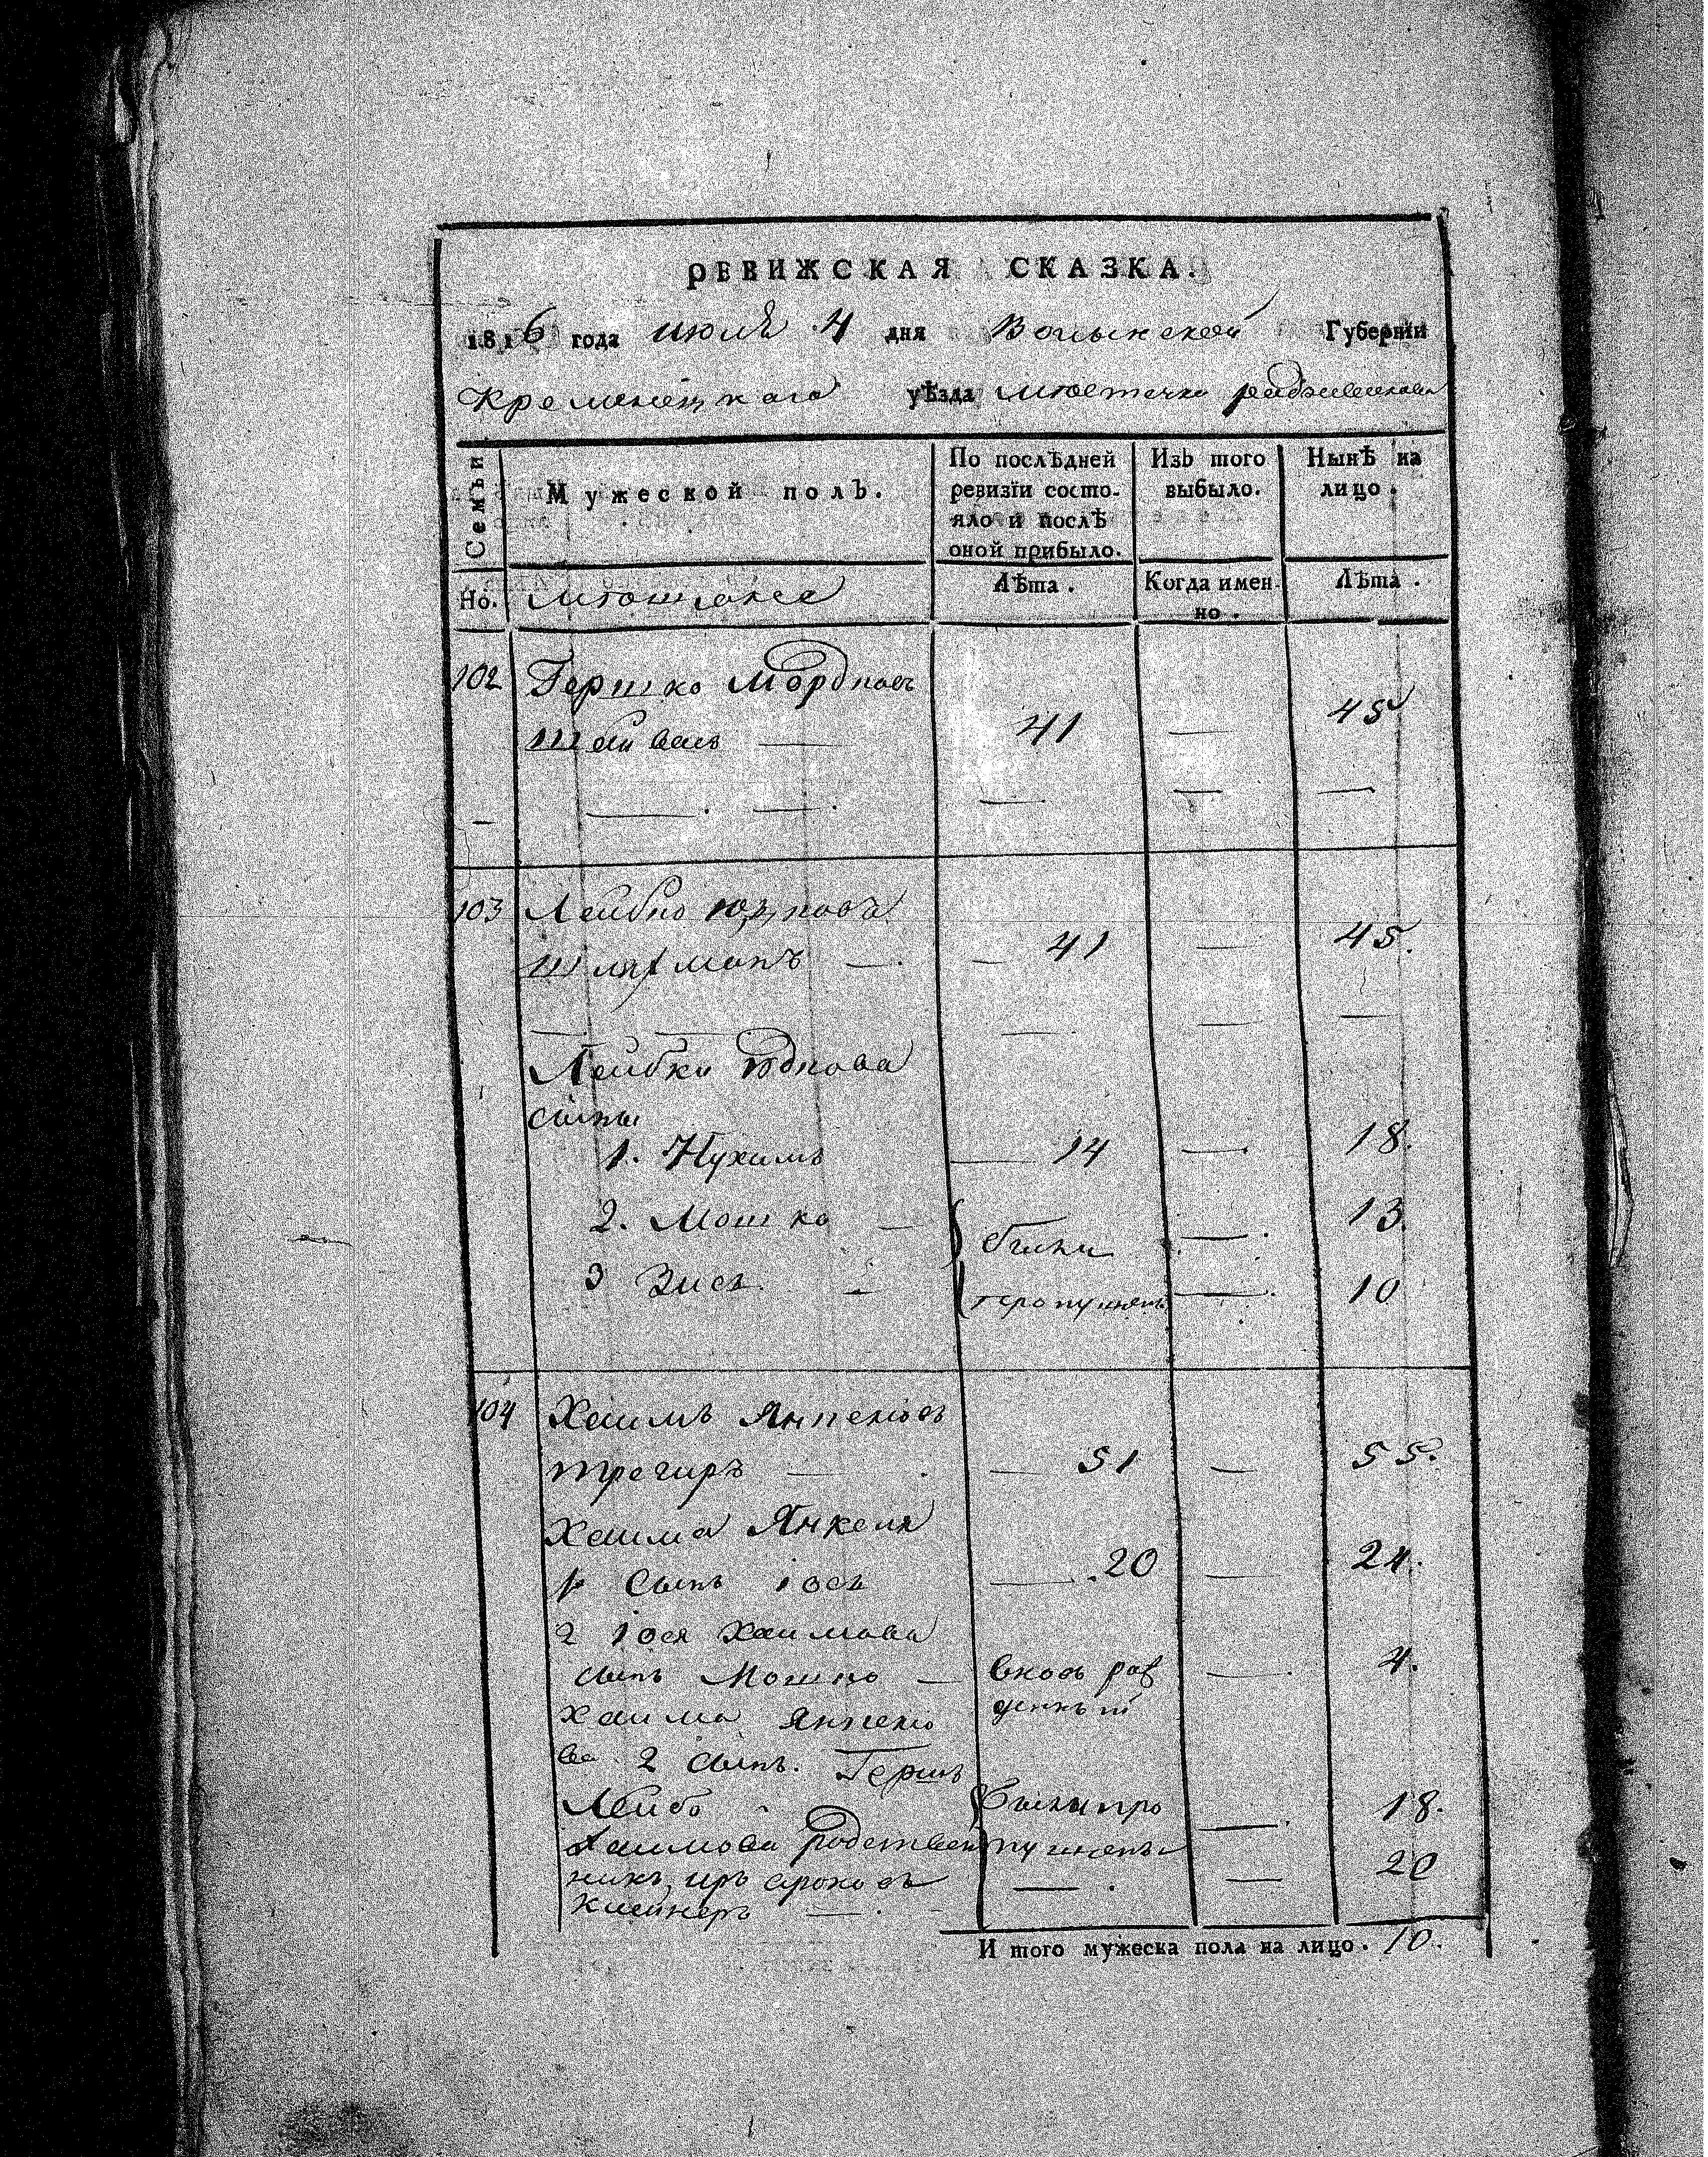 РЕВИЖСКАЯ СКАЗКА.
1816 года июля 4 дня Волынской Губернїи
Кременецкаго уѣзда местечка радзивилова
Семьи
Мужеской полЪ.
По послѣдней ревизїи состо-
яло и послѣ оной прибыло.
ИзЬ того выбыло.
Нынѣ на лицо.
Но.
Лѣта.
Когда имен-
но.
Лѣта.
102 Гершко Мордковъ
41 — 45
103 Лейбко
Шляхманъ — 41 — 45.
Лейбки
сыны
1. Нухимъ — 14 — 18.
2. Мошко — были — 13.
3 Зись — пропущены — 10
104 Хаимъ Янкелиовъ
Трегиръ — 51 — 55.
Хаима Янкеля
1 сынъ іось — 20 — 24.
2 іося Хаимова
сынъ Мошко — вновь рож — 4.
денный
Хаима Янкелио
ва 2 сынъ. Гершъ
Лейбъ были про — 18.
Хаимова родствен пущены
никъ сроковъ — 20
Клейнеръ —
И того мужеска пола на лицо. 10.